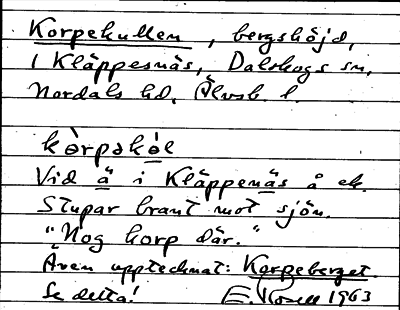 Korpekullen, bergshöjd,
i Kläppesnäs, Dalskogs sn,
Nordals hd, Älvsb. l.
kòrpəkəl
Vid ä i Kläppenäs å ek.
Stupar brant mot sjön.
"Nog korp där."
Även upptecknat: Korpeberget.
Se detta! E. Rosell 1963